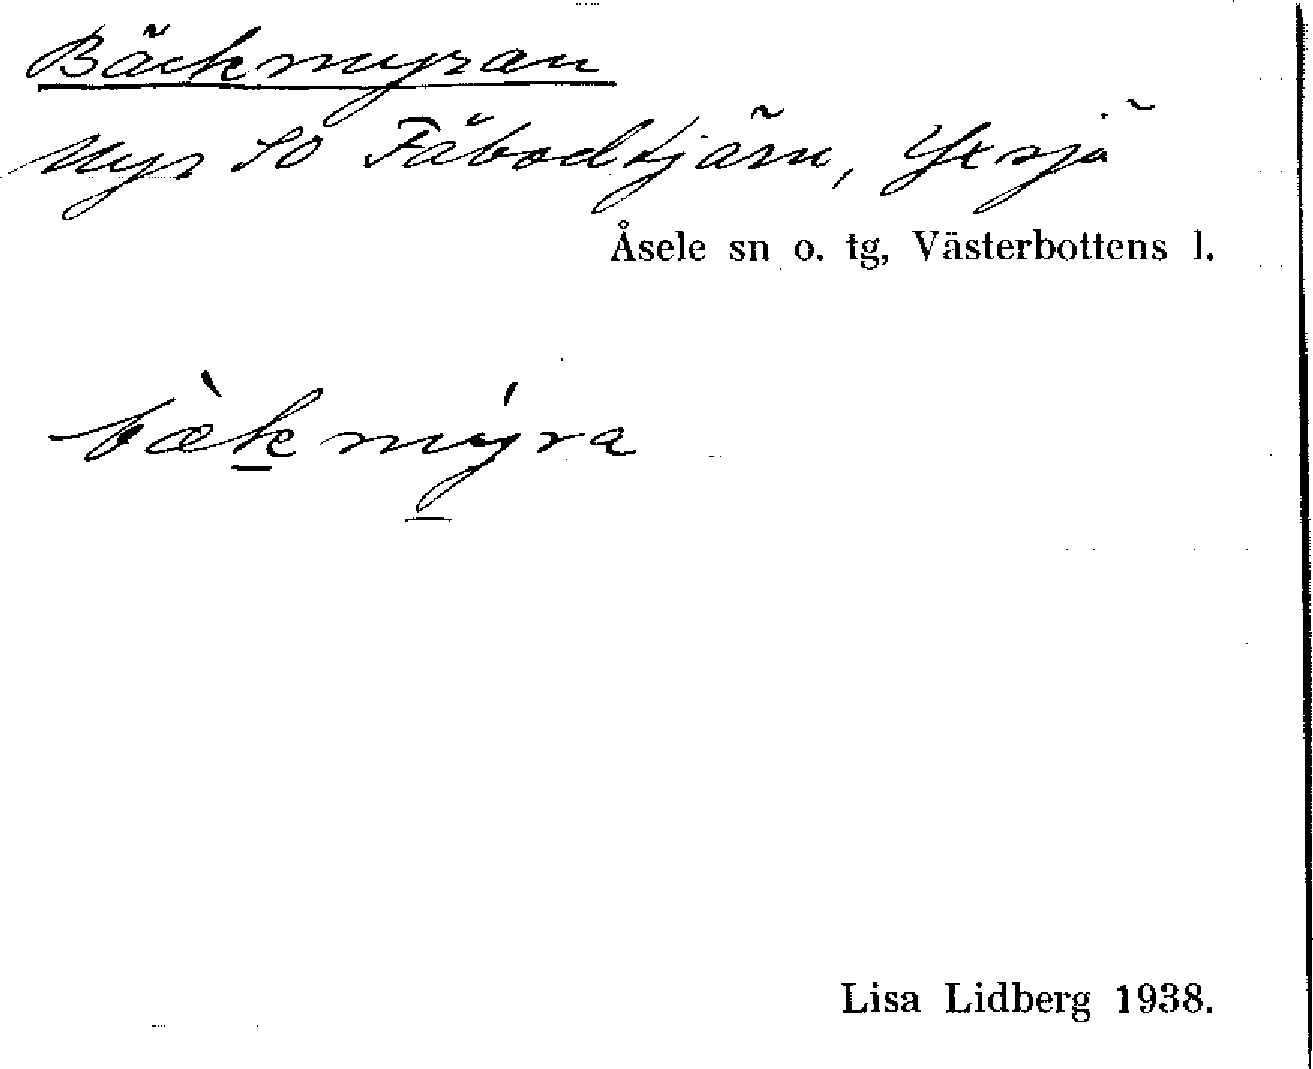 Bäckmyran
Myr SO Fäbodtjärn, Yxsjö
Åsele sn o. tg, Västerbottens l.
bæ̀kmýra
Lisa Lidberg 1938.